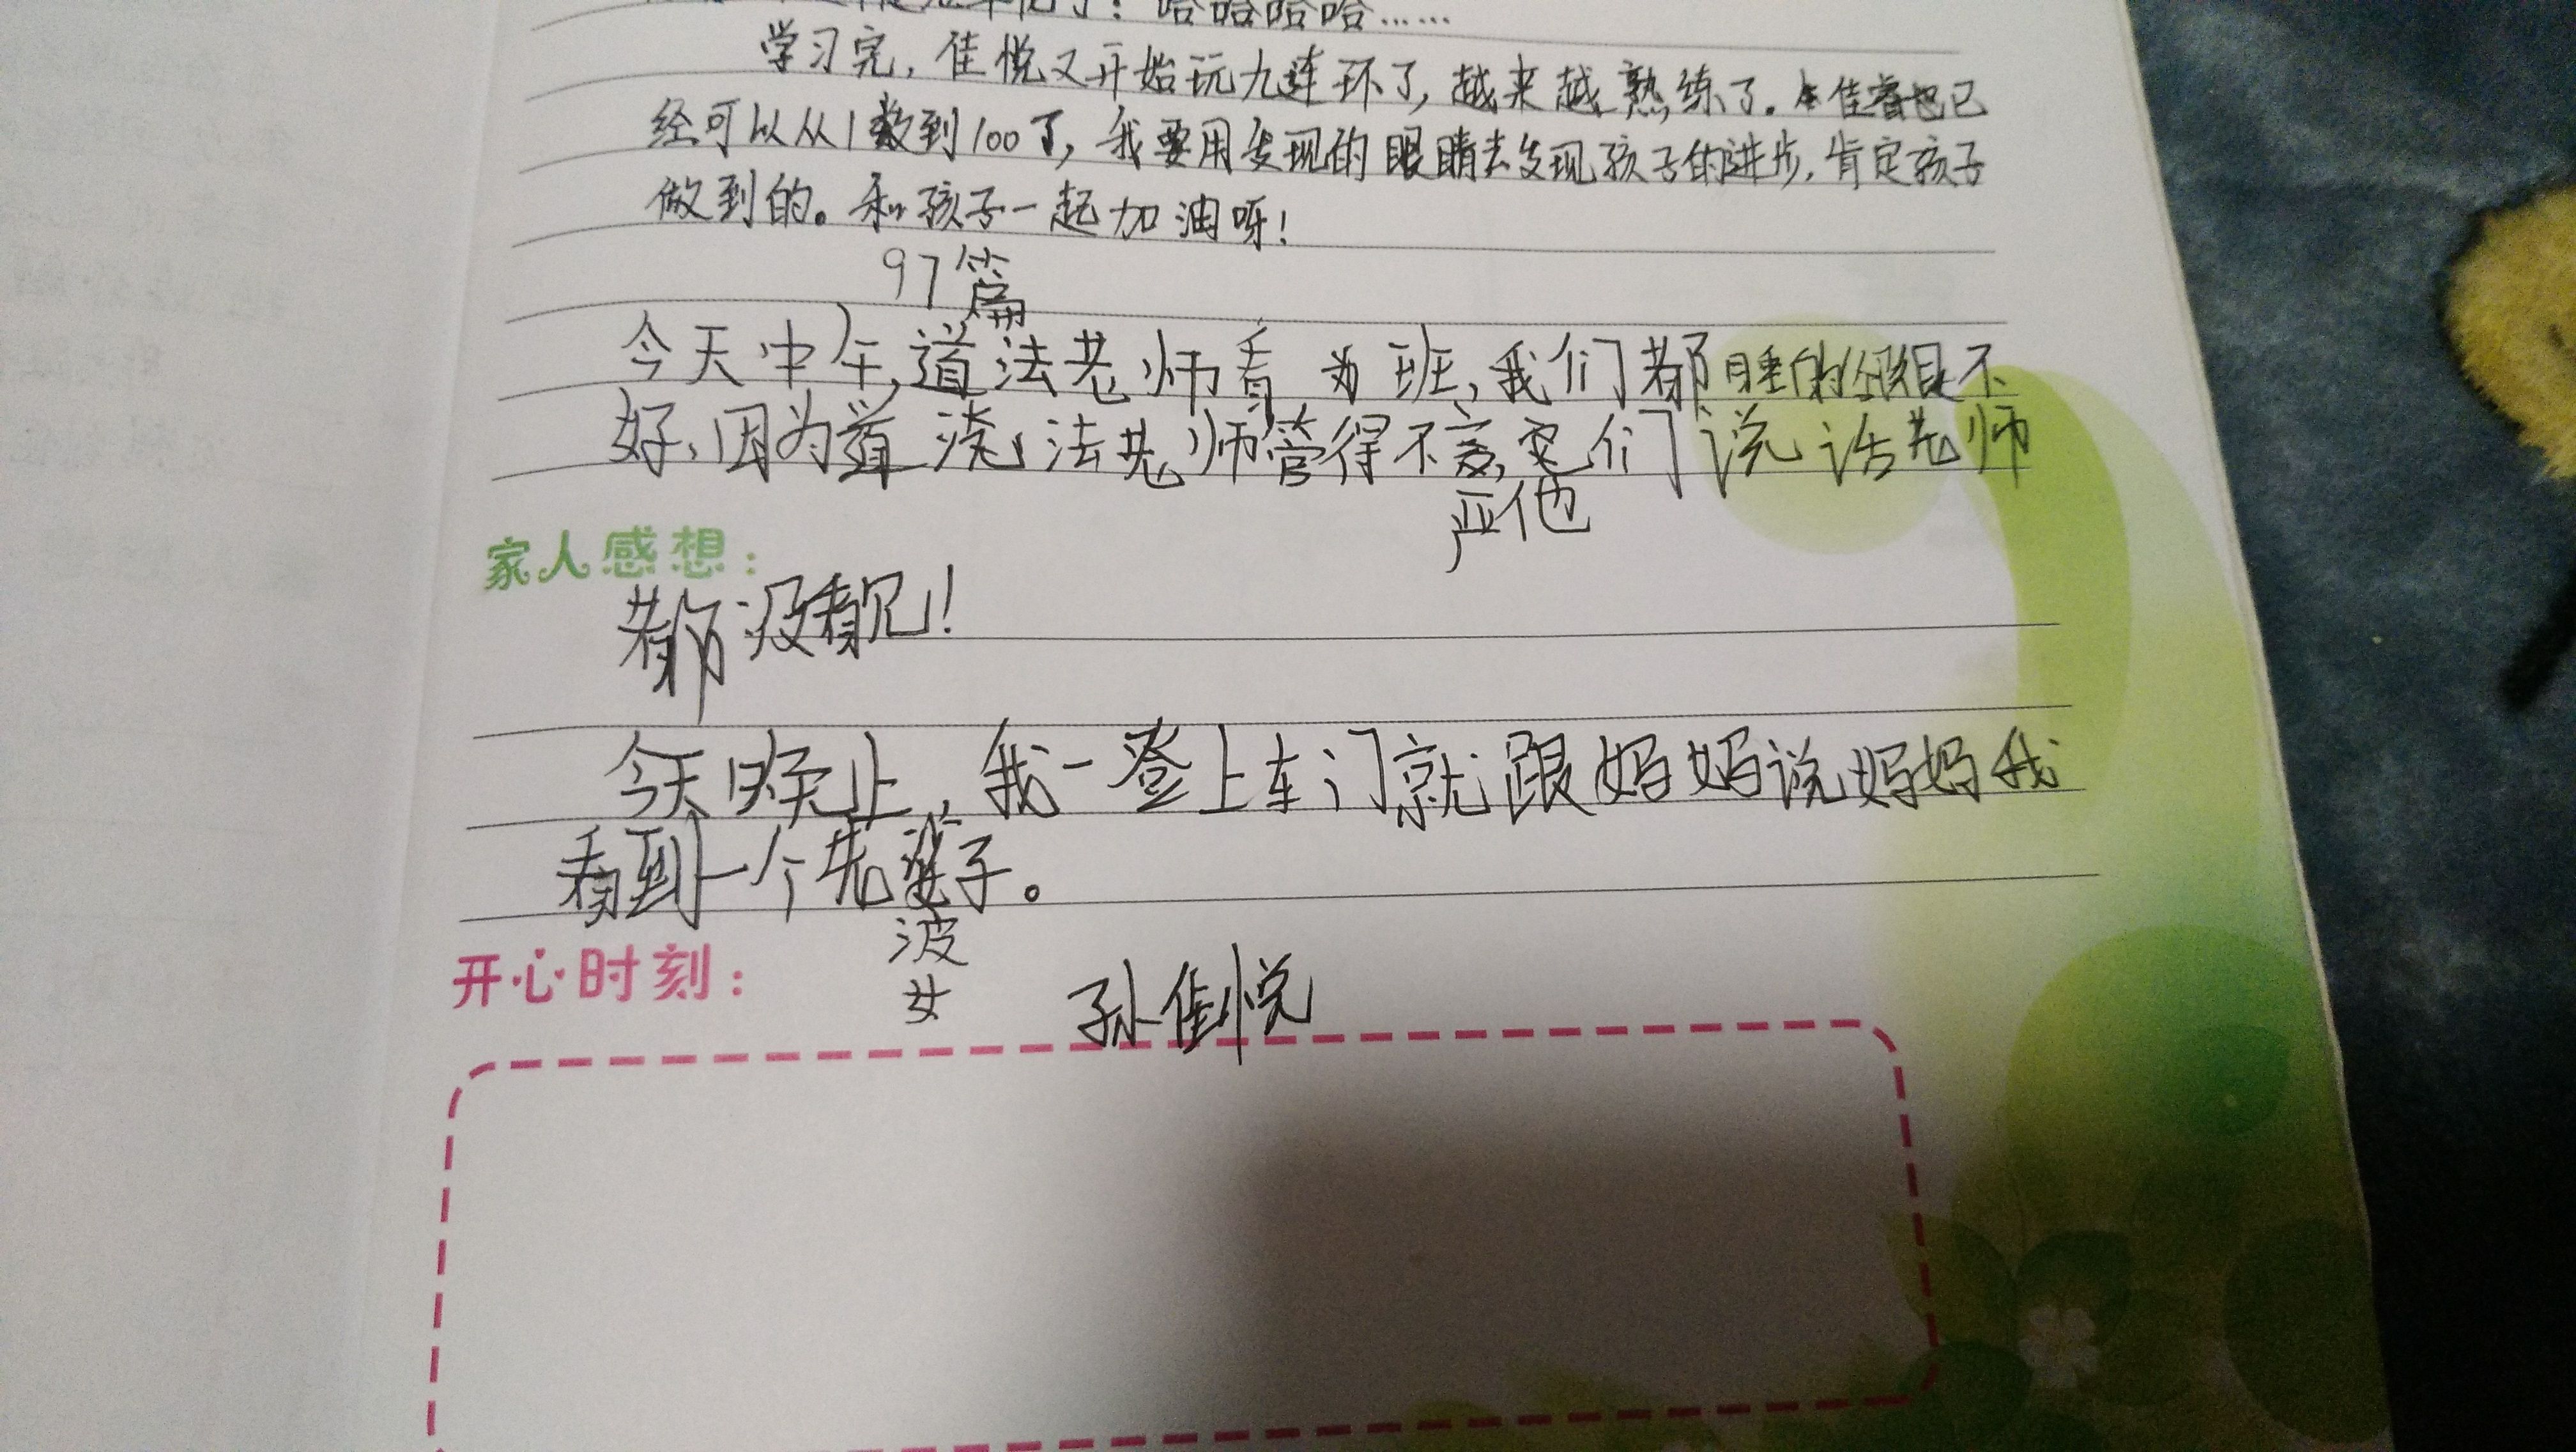 哈哈哈哈……
学习完，佳悦又开始玩九连环了，越来越熟练了。佳睿也已
经可以从1数到100了，我要用发现的眼睛去发现孩子的进步，肯定孩子
做到的。和孩子一起加油呀！
97篇
今天中午，道法老师看为班，我们都睡的很不
好，因为道法老师管得不们说话老师
严他
家人感想：
都没看见！
今天晚上，我一登上车门就跟妈妈说妈妈我
看到一个老婆子。
波
女
开心时刻：
孙佳悦